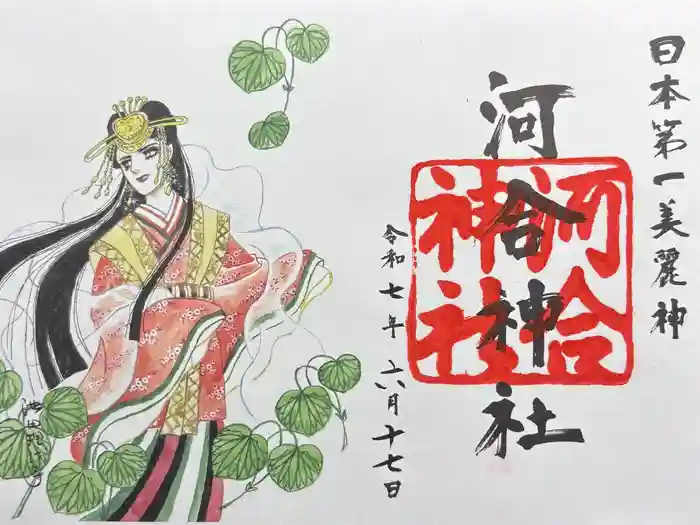 日本第一美麗神
河合神社
河合
神社
令和七年 六月十七日